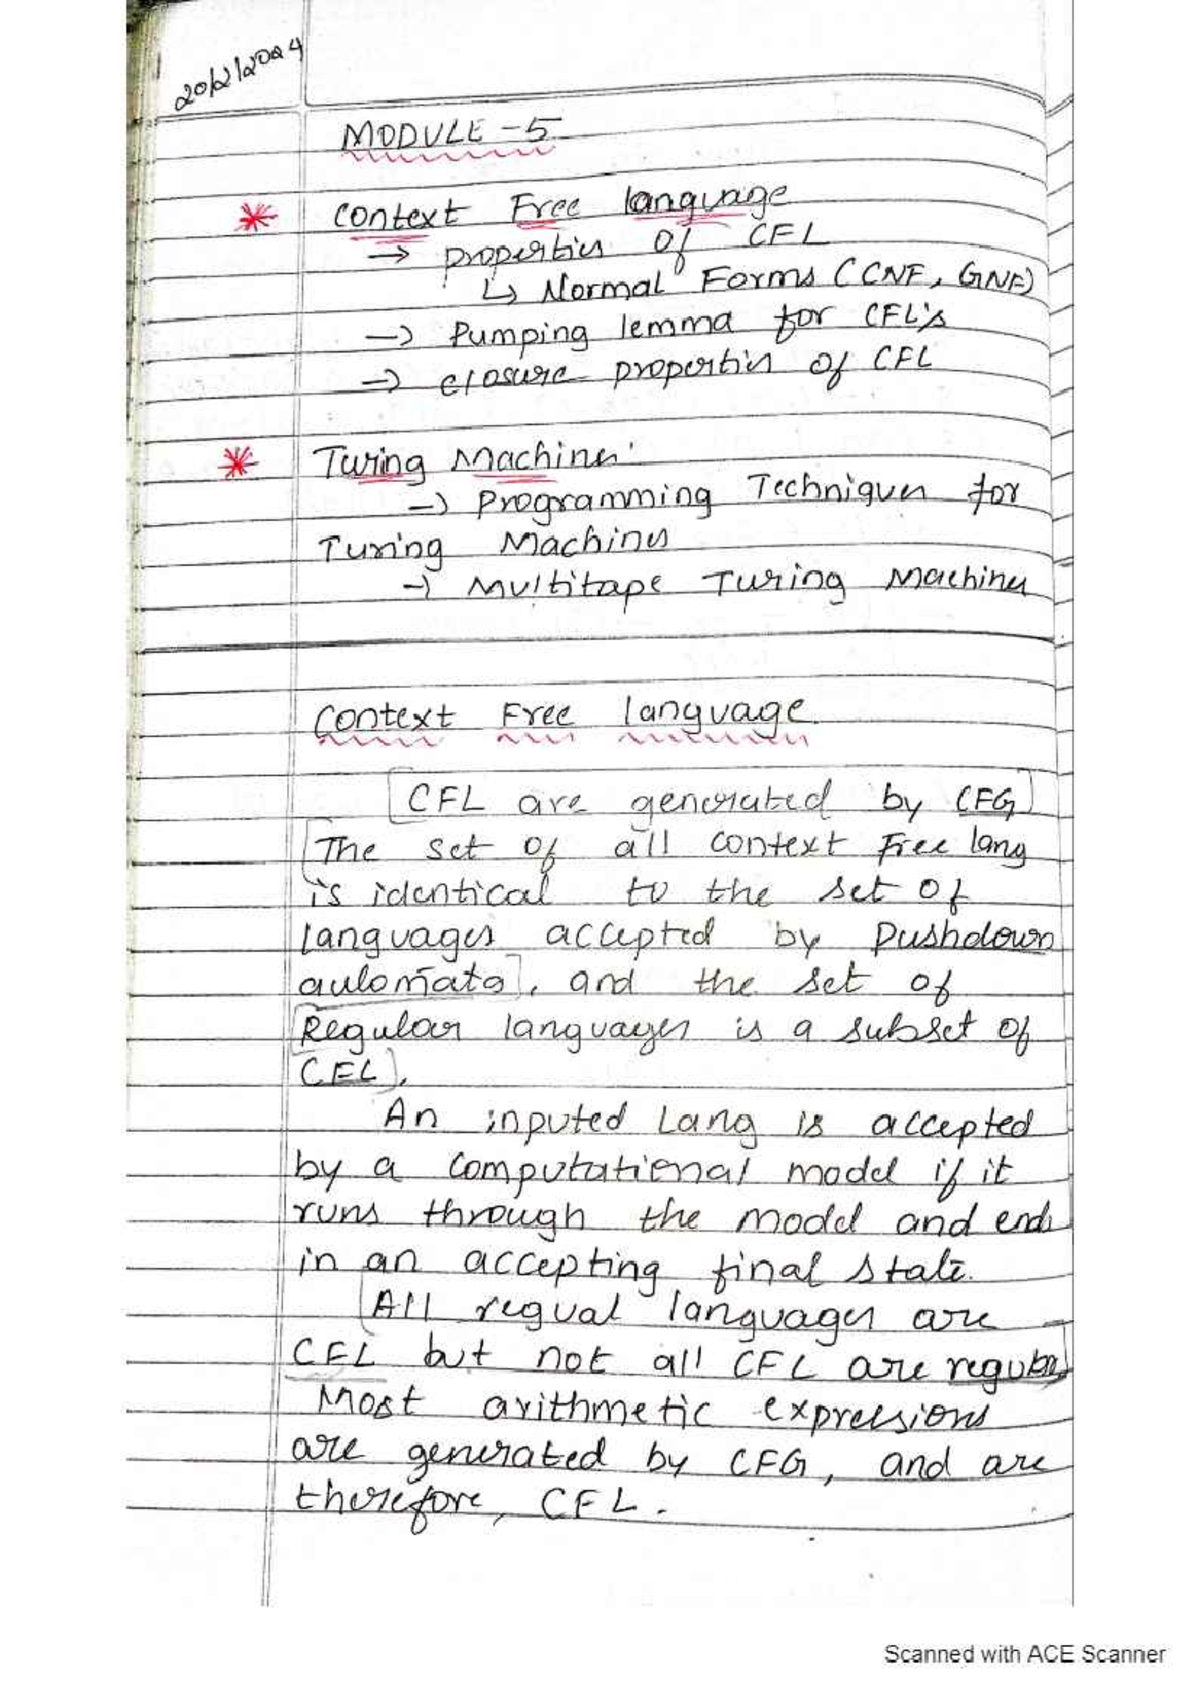 20/2/2024
MODULE-5
* Context Free language
→ properties of CFL
↳ Normal Forms (CNF, GNF)
→ Pumping lemma for CFL's
→ closure properties of CFL
* Turing Machines:
→ Programming Techniques for
Turing Machines
→ Multitape Turing Machines
Context Free language
[CFL are generated by CFG]
[The set of all context Free lang
is identical to the set of
languages accepted by Pushdown
automata], and the set of
[Regular languages is a subset of
CFL].
An inputed Lang is accepted
by a computational model if it
runs through the model and ends
in an accepting final state.
[All regual languages are
CFL but not all CFL are regular]
Most arithmetic expressions
are generated by CFG, and are
therefore, CFL.
Scanned with ACE Scanner